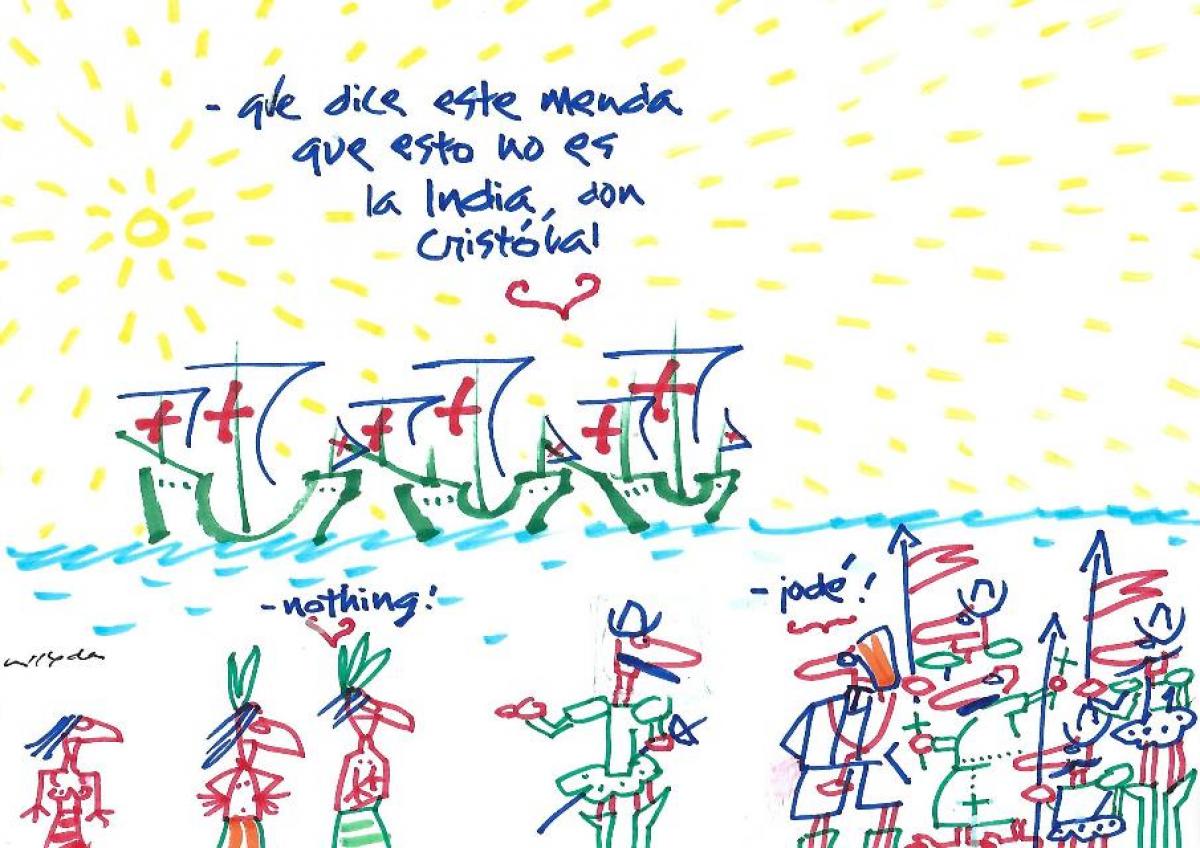 - que dice este menda
que esto no es
la India, don
Cristóbal
- nothing!
- jodé!